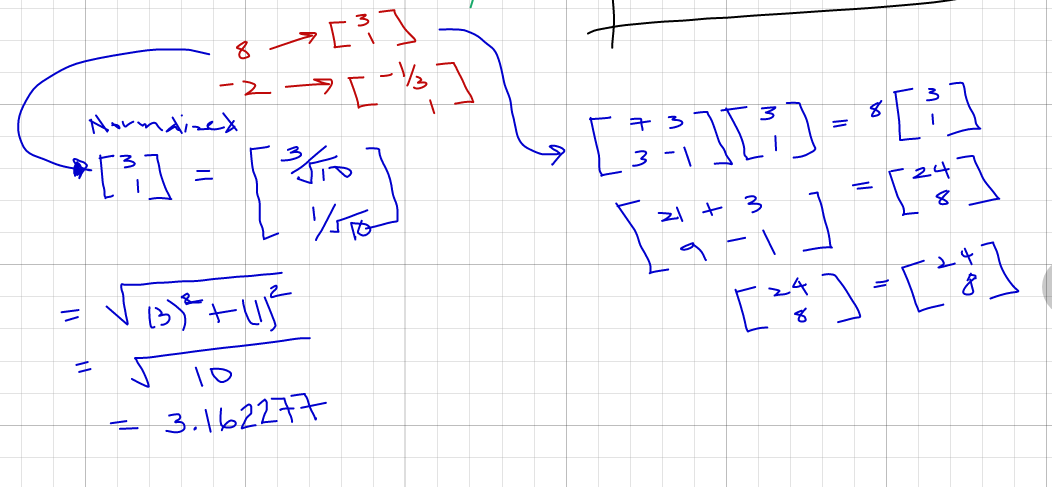 8 → [3 1]
-2 → [-1/3 1]
Normalized
[3 1] = [3/√10 1/√10]
= √(3)² + (1)²
= √10
= 3.162277
[7 3 3 -1][3 1] = 8[3 1]
[21 + 3 9 - 1] = [24 8]
[24 8] = [24 8]